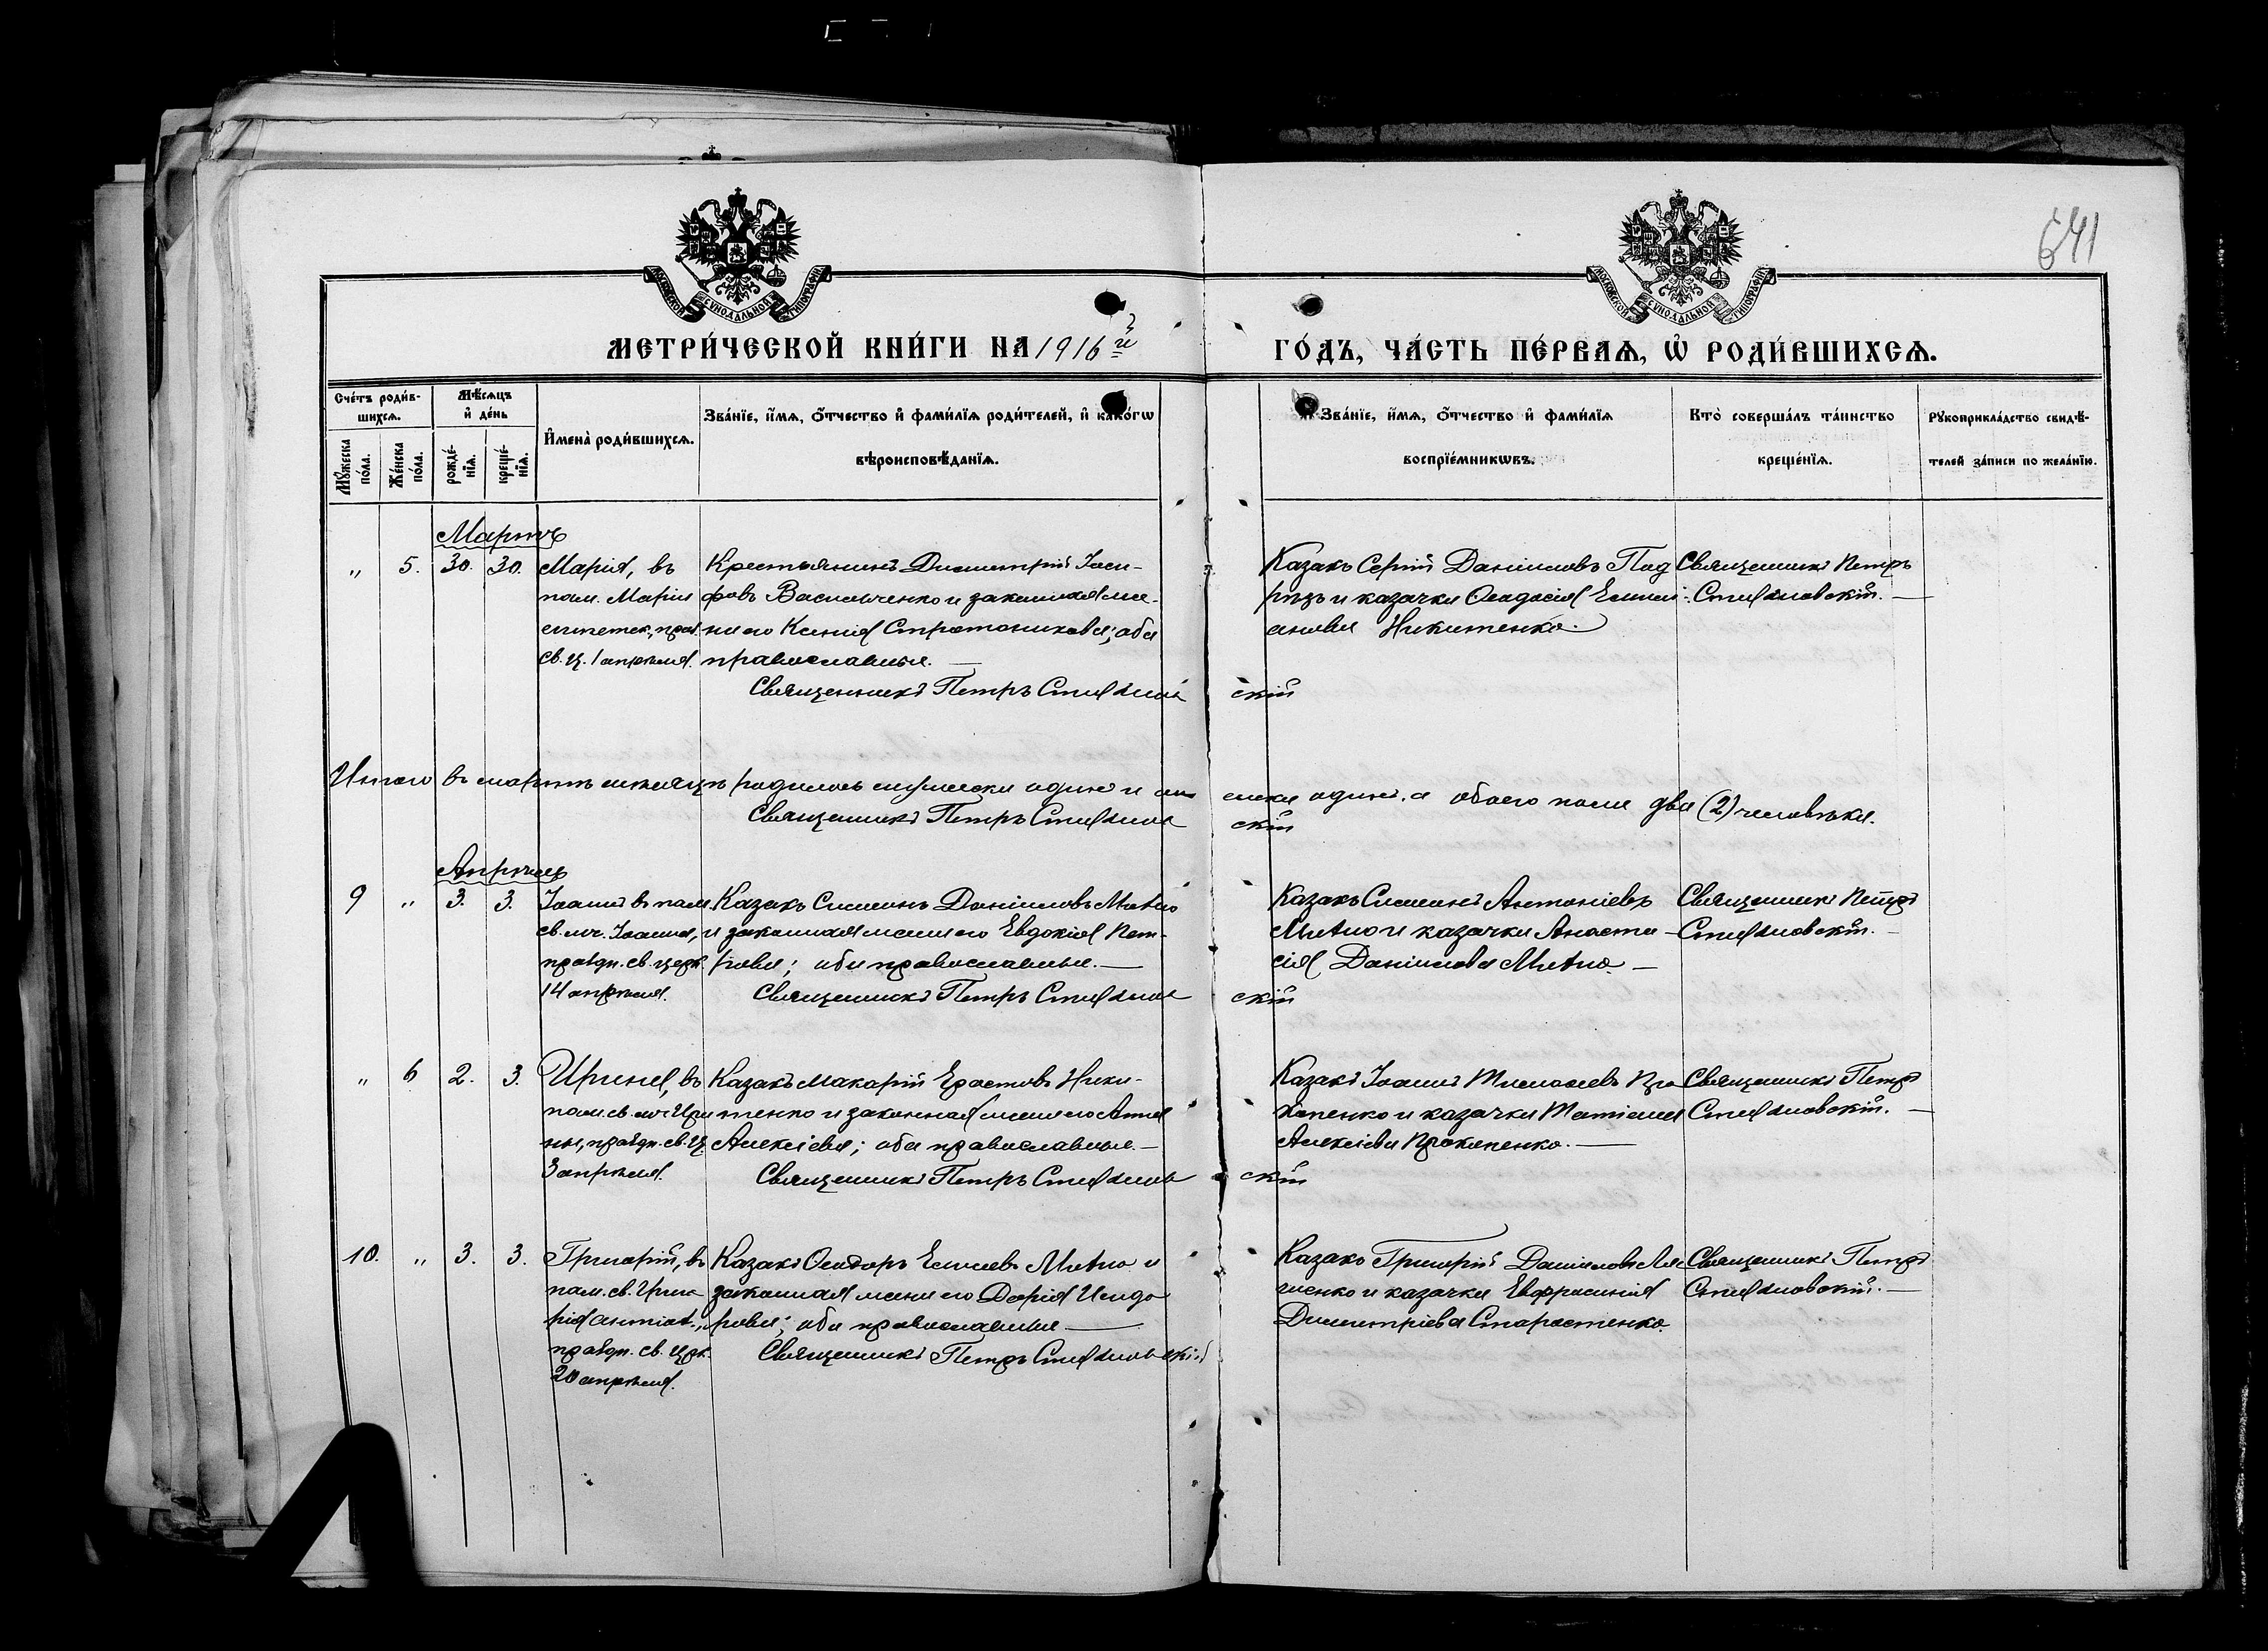 641
МОСКОВСКОЙ СѴНОДАЛЬНОЙ ТИПОГРАФІИ
МОСКОВСКОЙ СѴНОДАЛЬНОЙ ТИПОГРАФІИ
МЕТРИ́ЧЕСКОЙ КНИ́ГИ НА 1916й ГО́ДЪ, ЧА́СТЬ ПЕ́РВАѦ, Ѡ҆ РОДИ́ВШИХСѦ.
Сче́тъ роди́в-
шихсѧ.
Мѣ́сѧцъ
и҆ де́нь
И҆мена̀ роди́вшихсѧ.
Зва́нїе, и҆́мѧ, ѻ҆́тчество и҆ фами́лїѧ роди́телей, и҆ како́гѡ
вѣроисповѣ́данїѧ.
Зва́нїе, и҆́мѧ, ѻ҆́тчество и҆ фами́лїѧ
воспрїе́мникѡвъ.
Кто̀ соверша́лъ та́инство
креще́нїѧ.
Рꙋкоприкла́дство свидѣ́-
телей за́писи по жела́нїю.
Мꙋ́жеска
по́ла.
Же́нска
по́ла.
рожде́-
нїѧ.
креще́-
нїѧ.
Мартъ
„ 5. 30. 30.
Марія, въ
пам. Маріи
египет., празд.
св. ц. 1 апрѣля.
Крестьянинъ Димитрій Іоси-
фовъ Васильченко и законная же-
на его Ксенія Стратоникова; оба
православные. —
Священникъ Петръ Стефановскій
Казакъ Сергій Даніиловъ Под
рѣзъ и казачка Ѳеодосія Емили-
анова Никитенко.
Священникъ Петръ
Стефановскій. —
Итого въ мартѣ мѣсяцѣ родилось мужеска одинъ и женска одинъ, а обоего пола два (2) человѣка.
Священникъ Петръ Стефановскій
Апрѣль
9 „ 3. 3.
Іоаннъ въ пам.
св. мч. Іоанна,
праздн. св. церк.
14 апрѣля.
Казакъ Симеонъ Даніиловъ
и законная жена его Евдокія Пет-
рова; оба православные. —
Священникъ Петръ Стефановскій
Казакъ Симеонъ Антоніевъ
и казачка Анаста-
сія Даніилова
Священникъ Петръ
Стефановскій. —
„ 6 2. 3.
Ирина, въ
пам. св. мч. Ири
ны, праздн. св. ц.
3 апрѣля.
Казакъ Макарій Ерастовъ Ники-
тенко и законная жена его Анна
Алексіева; оба православные. —
Священникъ Петръ Стефановскій
Казакъ Іоаннъ Тимоѳеевъ Про
копенко и казачка Татіана
Алексіева Прокопенко. —
Священникъ Петръ
Стефановскій. —
10. „ 3. 3.
Григорій, въ
пам. св. Григо
рія антіох.,
праздн. св. црк.
20 апрѣля.
Казакъ Ѳеодоръ Елисеевъ и
законная жена его Дарія Исидо
рова; оба православные —
Священникъ Петръ Стефановскій
Казакъ Григорій Даніиловъ Ля
шенко и казачка Евфросинія
Димитріева Старостенко.
Священникъ Петръ
Стефановскій. —